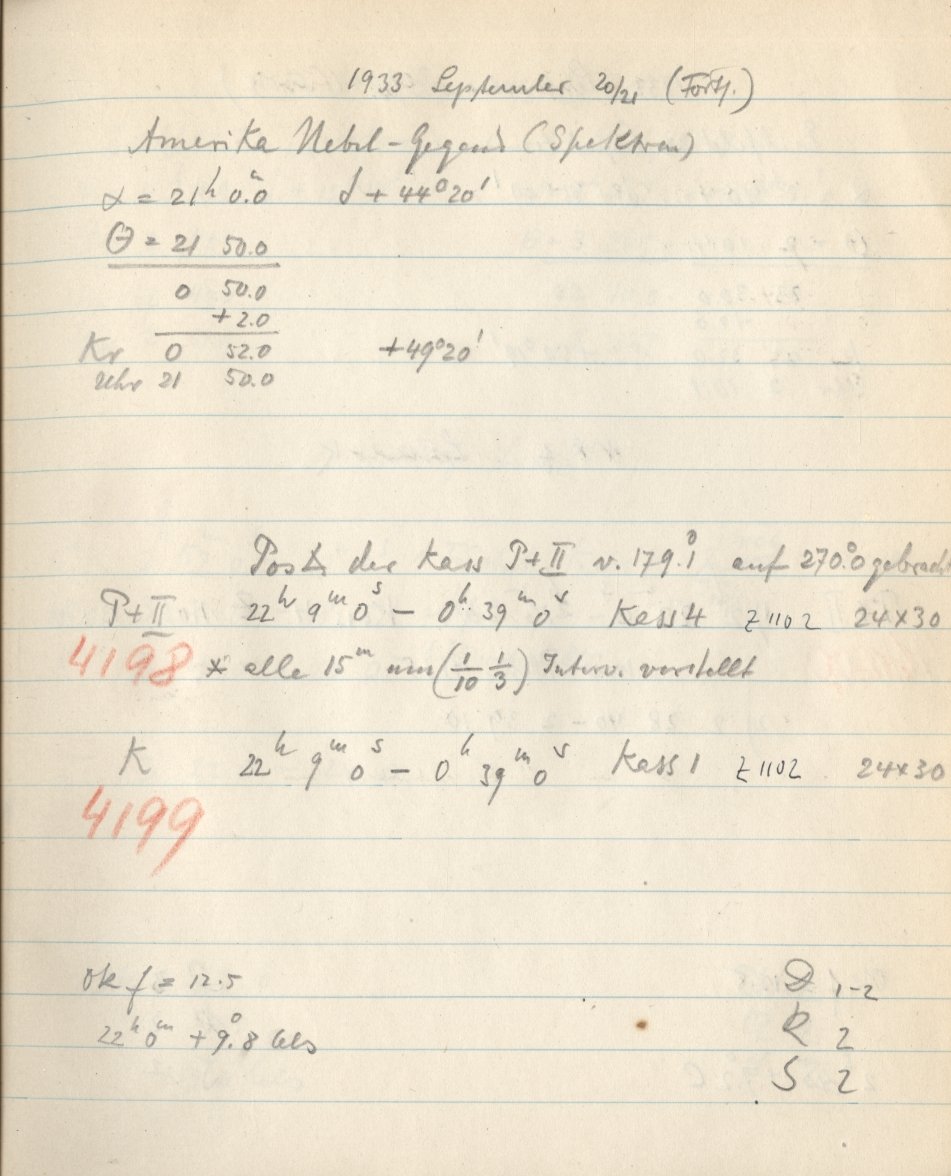 1933 September 20/21 (Forts.)
Amerika Nebel-Gegend (Spektren)
α = 21ʰ 0.ᵐ0 δ + 44° 20'
θ = 21 50.0
0 50.0
+2.0
Kr 0 52.0 +49° 20'
Uhr 21 50.0
Pos ∡ der Kass P+II v. 179.°1 auf 270.°0 gebracht
P+II 22ʰ 9ᵐ 0ˢ – 0ʰ 39ᵐ 0ˢ Kass 4 Z 1102 24×30
4198 * alle 15ᵐ um (1/10 1/3) Interv. verstellt
K 22ʰ 9ᵐ 0ˢ – 0ʰ 39ᵐ 0ˢ Kass 1 Z 1102 24×30
4199
Ok f = 12.5 D 1-2
22ʰ 0ᵐ + 9.°8 Cels R 2
S 2